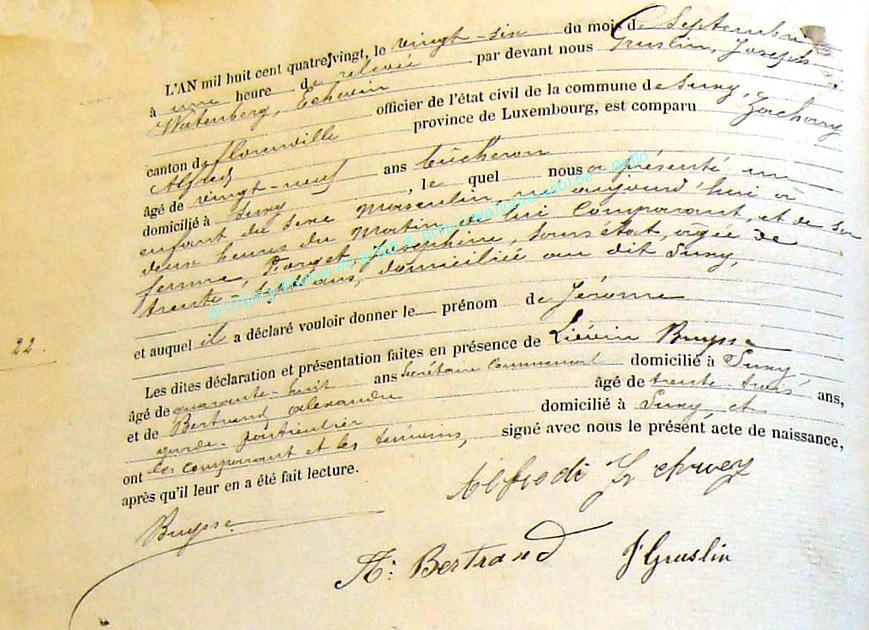 L'AN mil huit cent quatre-vingt, le vingt-six du mois de Septembre
à une heure de relevée par devant nous Gruslin, Joseph
Watenberg, Echevin officier de l'état civil de la commune de Suxy,
canton de Florenville province de Luxembourg, est comparu Zachary
Alfred
âgé de vingt-neuf ans bûcheron
domicilié à Suxy, le quel nous a présenté un
enfant du sexe masculin né aujourd'hui à
deux heures du matin de lui comparant, et de son
femme, Forget, Joséphine, sans état, agée de
trente-sept ans, domiciliée au dit Suxy,
et auquel il a déclaré vouloir donner le prénom de Jérome
22.
Les dites déclaration et présentation faites en présence de Liévin Buysse
âgé de quarante-huit ans Secrétaire Communal domicilié à Suxy
et de Bertrand Alexandre âgé de trente-trois ans,
garde-particulier domicilié à Suxy, et
ont les comparant et les témoins, signé avec nous le présent acte de naissance,
après qu'il leur en a été fait lecture.
Buysse
A: Bertrand J Gruslin